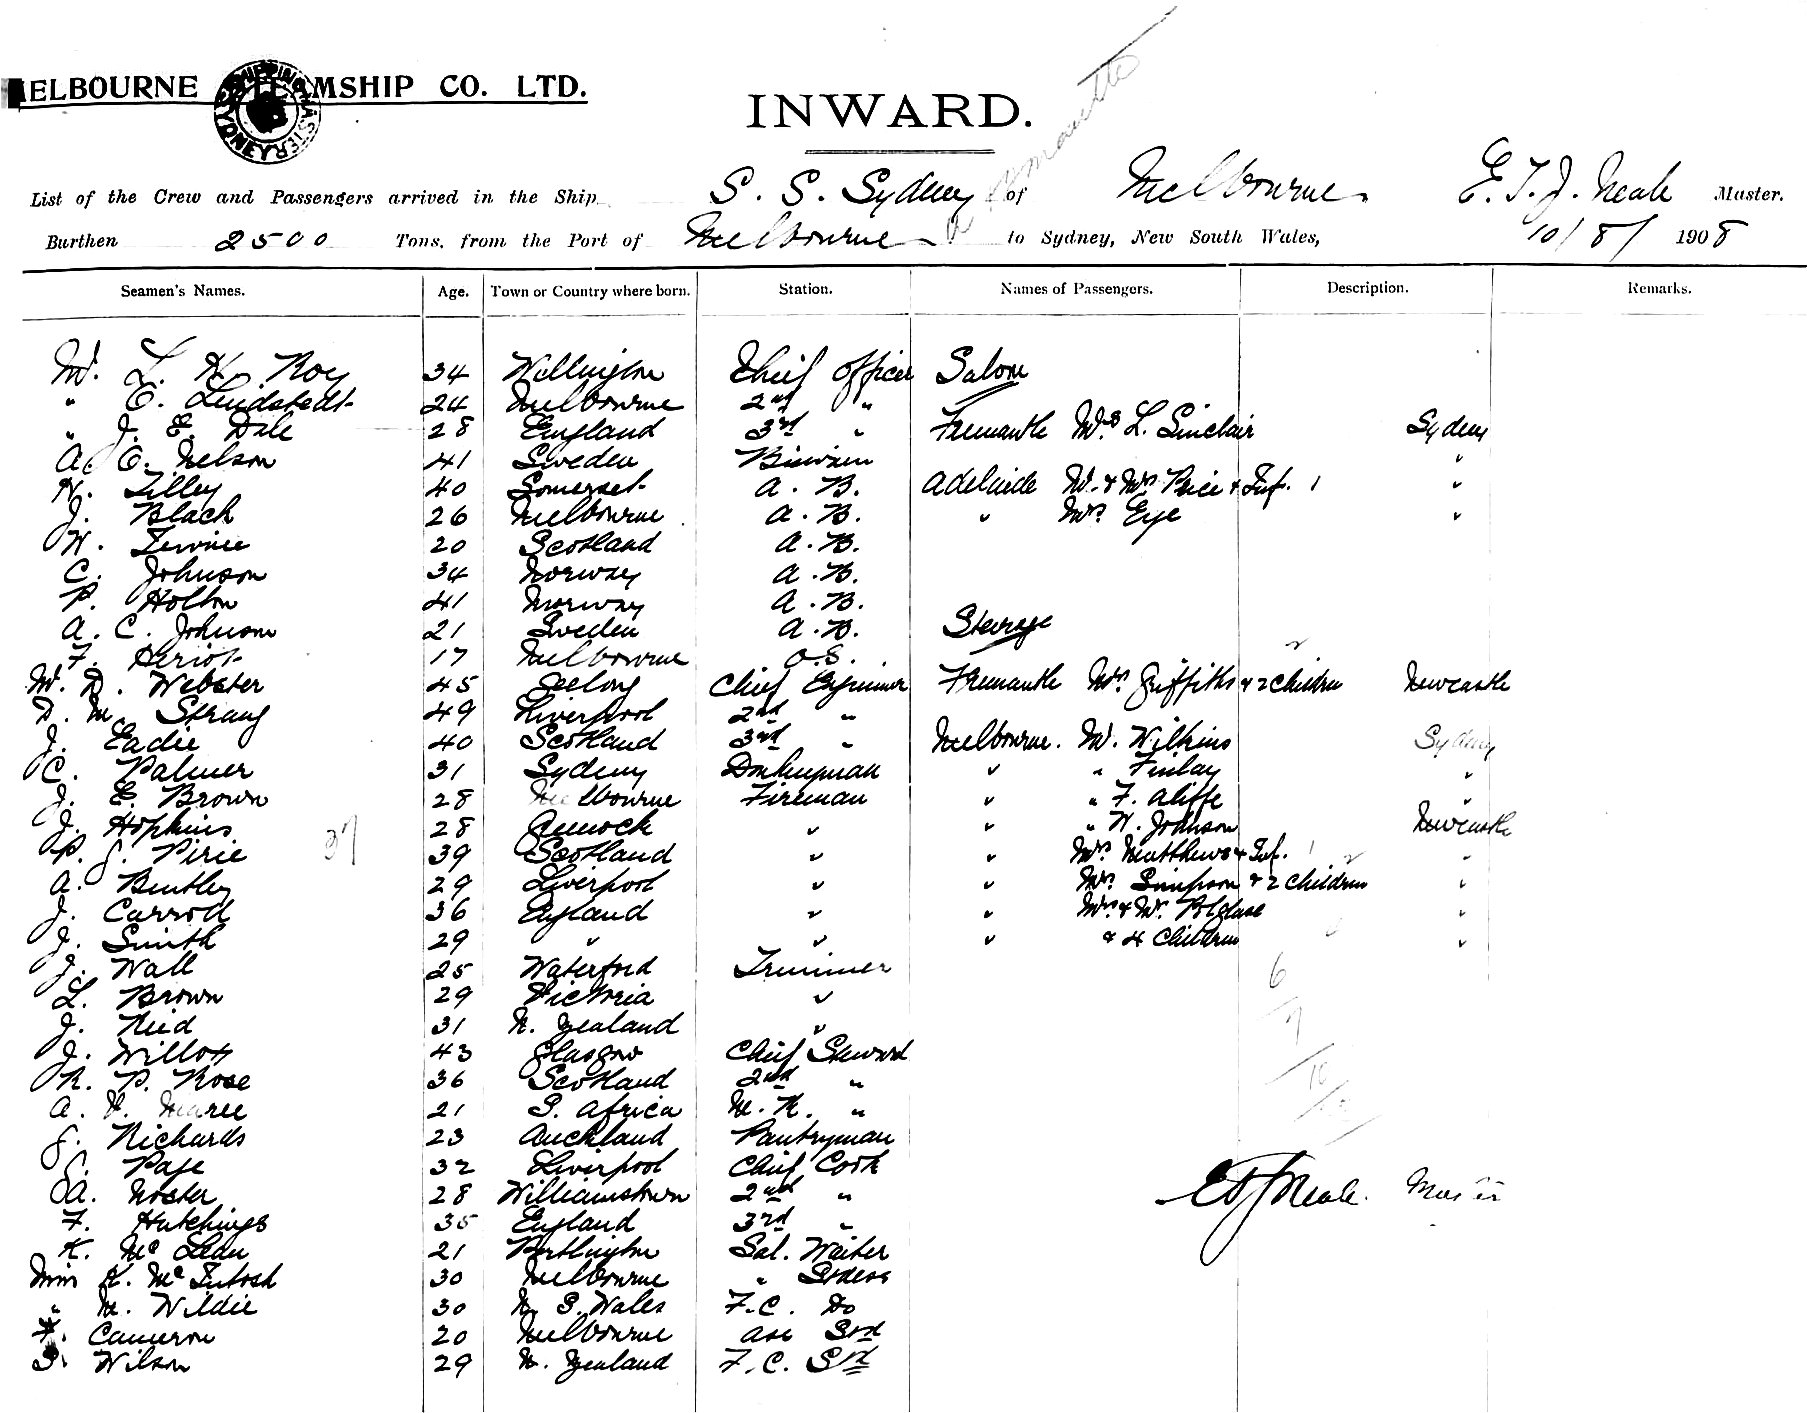 MELBOURNE STEAMSHIP CO. LTD.
SHIPPING MASTER SYDNEY
INWARD.
Fremantle
List of the Crew and Passengers arrived in the Ship S. S. Sydney of Melbourne E. T. J. Neale Master.
Burthen 2500 Tons, from the Port of Melbourne to Sydney, New South Wales, 10/8/1908
Seamen's Names. Age. Town or Country where born. Station. Names of Passengers. Description. Remarks.
Mr. L. H. Roy 34 Wellington Chief Officer Saloon
" C. Lindstedt 24 Melbourne 2nd "
" J. E. Dale 28 England 3rd " Fremantle Mrs L. Sinclair Sydney
A. C. Nelson 41 Sweden "
H. Tilley 40 Somerset A. B. Adelaide Mr. & Mrs Price & Inf. 1 "
J. Black 26 Melbourne A. B. " Mrs Eye "
W. 20 Scotland A. B.
C. Johnson 34 Norway A. B.
P. Holton 41 Norway A. B.
A. C. Johnson 21 Sweden A. B. Steerage
F. Heriot 17 Melbourne O.S. 2
Mr. D. Webster 45 Geelong Chief Engineer Fremantle Mrs Griffiths & 2 Children Newcastle
D. M. Strang 49 Liverpool 2nd "
J. Eadie 40 Scotland 3rd " Melbourne. Mr. Wilkins Sydney
C. Palmer 31 Sydney Donkeyman " " Finlay "
J. E. Brown 28 Melbourne Fireman " " F. Aliffe "
J. Hopkins 28 " " " W. Johnson Newcastle
37
P. J. Pirie 39 Scotland " " Mrs Matthews & Inf. 1 "
A. Bentley 29 Liverpool " " Mrs Simpson & 2 Children 2 "
J. Carroll 36 England " " Mrs. & Mr. Polglase "
J. Smith 29 " " " & 4 Children "
J. Wall 25 Waterford Trimmer 6
L. Brown 29 Victoria "
J. Reid 31 N. Zealand " 7
J. Willox 43 Glasgow Chief Steward
R. P. Rose 36 Scotland 2nd " 10
A. V. Maree 21 S. Africa M. R. "
J. Richards 23 Auckland Pantryman
Page 32 Liverpool Chief Cook
A. 28 Williamstown 2nd " ETJ Neale. Master
F. Hutchings 35 England 3rd "
K. McLean 21 Portlington Sal. Waiter
Miss K. McIntosh 30 Melbourne " Stdess
" M. Wildie 30 N. S. Wales F.C. Do
F. Cameron 20 Melbourne Ass Strd
S. Wilson 29 N. Zealand F.C. Strd